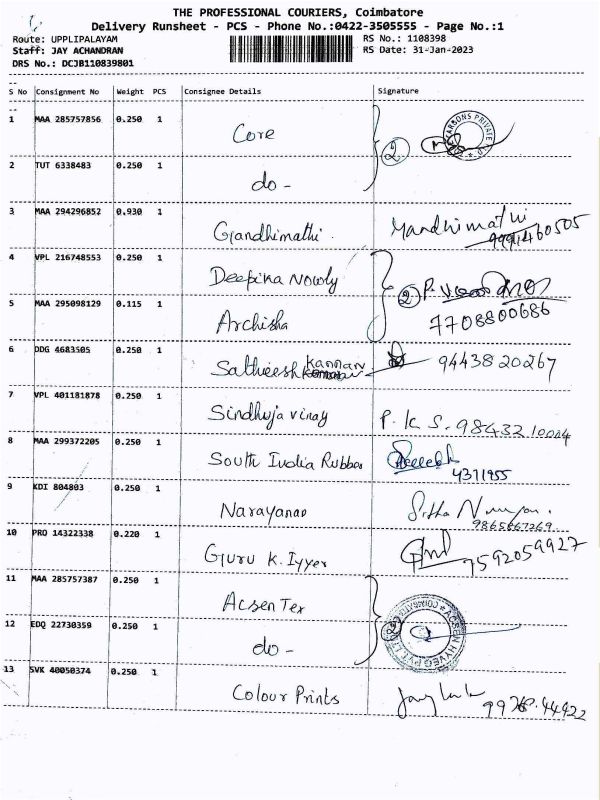 THE PROFESSIONAL COURIERS, Coimbatore
Delivery Runsheet - PCS - Phone No.:0422-3505555 - Page No.:1
Route: UPPLIPALAYAM RS No.: 1108398
Staff: JAY ACHANDRAN RS Date: 31-Jan-2023
DRS No.: DCJB110839801
S No Consignment No Weight PCS Consignee Details Signature
1 MAA 285757856 0.250 1 Core 2
2 TUT 6338483 0.250 1 do -
3 MAA 294296852 0.930 1 Gandhimathi
4 VPL 216748553 0.250 1 Deepika Nowly 2 P.
5 MAA 295098129 0.115 1 Archisha 7708800686
6 DDG 4683505 0.250 1 Satheesh Kannan 9443820267
7 VPL 401181878 0.250 1 Sindhuja vinay P. K S. 9843210004
8 MAA 299372205 0.250 1 South India Rubber 4371955
9 KDI 804803 0.250 1 Narayanan 9865667269
10 PRO 14322338 0.220 1 Guru K. Iyyer 7592059927
11 MAA 285757387 0.250 1 Acsen Tex
12 EDQ 22730359 0.250 1 do - ACSEN HYVEG PVT. LTD
13 SVK 40050374 0.250 1 Colour Prints